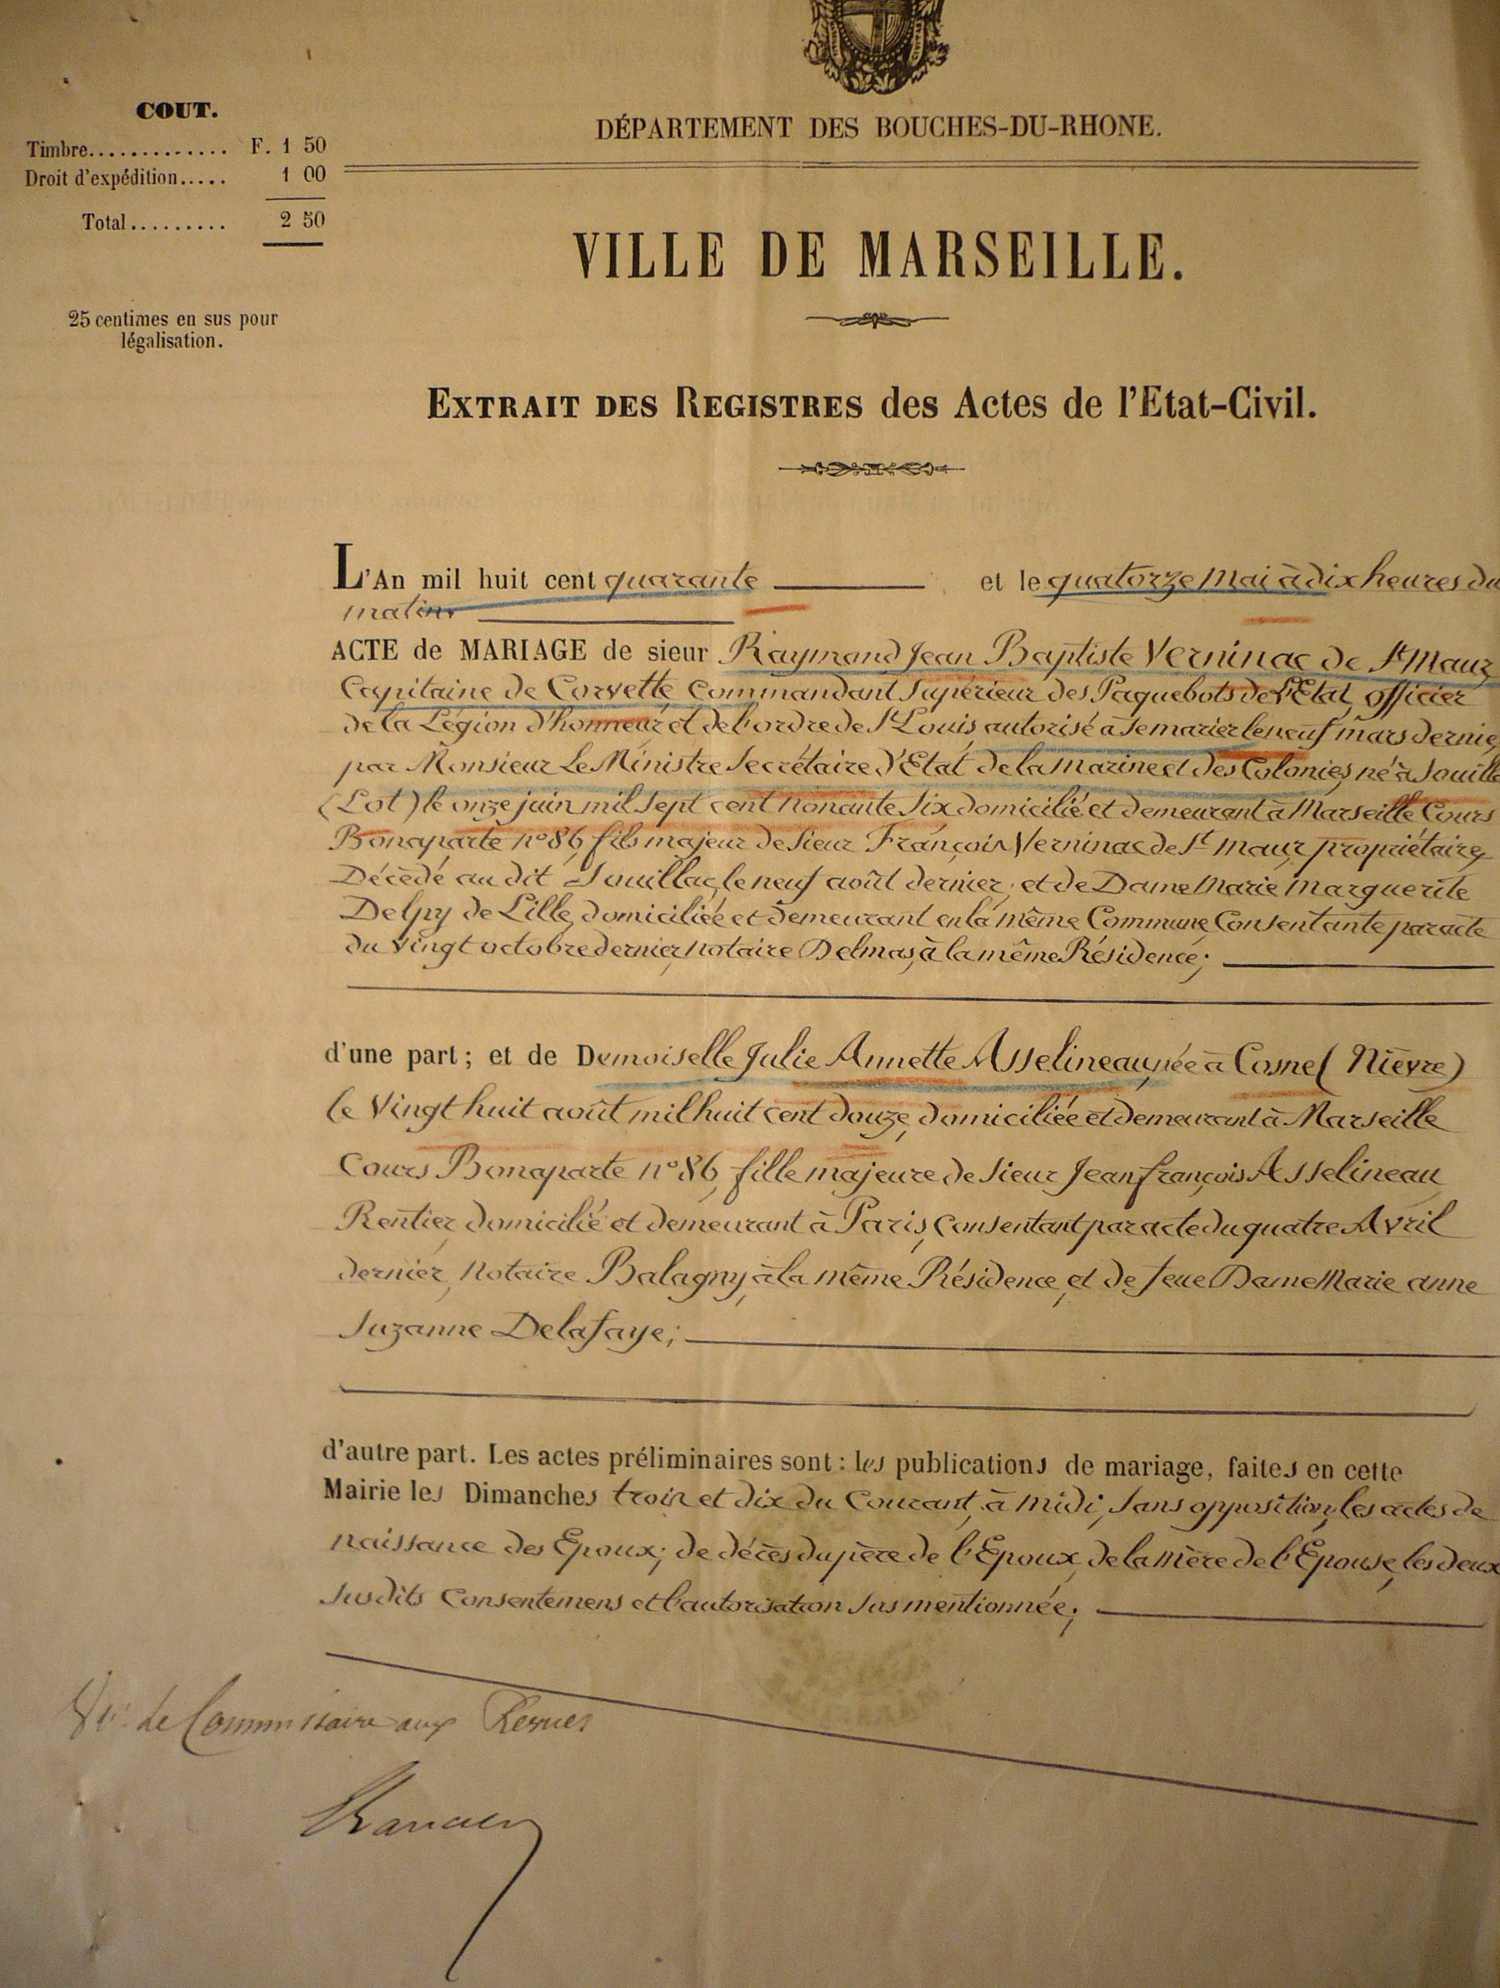 COUT.
Timbre............. F. 1 50
Droit d'expédition..... 1 00
Total......... 2 50
25 centimes en sus pour
légalisation.
DÉPARTEMENT DES BOUCHES-DU-RHONE.
VILLE DE MARSEILLE.
EXTRAIT DES REGISTRES des Actes de l'Etat-Civil.
L'An mil huit cent quarante et le quatorze Mai à dix heures du
matin
ACTE de MARIAGE de sieur Raymond Jean Baptiste Verninac de St Maur,
Capitaine de Corvette Commandant Supérieur des Paquebots de l'Etat, officier
de la Légion d'honneur et de l'ordre de St Louis, autorisé à se marier le neuf mars dernier,
par Monsieur Le Ministre Secrétaire d'Etat de la Marine et des Colonies, né à Souillac
(Lot) le onze juin mil sept cent nonante Six domicilié et demeurant à Marseille Cours
Bonaparte n° 86, fils majeur de Sieur François Verninac de St maur, propriétaire,
Décédé au dit Souillac, le neuf août dernier, et de Dame Marie Marguerite
Delpy de Lille, domiciliée et demeurant en la même Commune, Consentante par acte
du vingt octobre dernier, notaire Delmas, à la même Résidence;
d'une part; et de Demoiselle Julie Annette Asselineau, née à Cosne (Nièvre)
le Vingt huit août mil huit cent douze, domiciliée et demeurant à Marseille
Cours Bonaparte n° 86, fille majeure de Sieur Jean françois Asselineau,
Rentier, domicilié et demeurant à Paris, Consentant par acte du quatre Avril
dernier, notaire Balagny, à la même Résidence, et de feue Dame Marie anne
Suzanne Delafaye;
d'autre part. Les actes préliminaires sont : les publications de mariage, faites en cette
Mairie les Dimanches trois et dix du Courant, à midi, Sans opposition, les actes de
naissance des Epoux; de décès du père de l'Epoux, de la mère de l'Epouse, les deux
Susdits Consentemens et l'autorisation Sus mentionnée;
Vu: Le Commissaire aux Revues